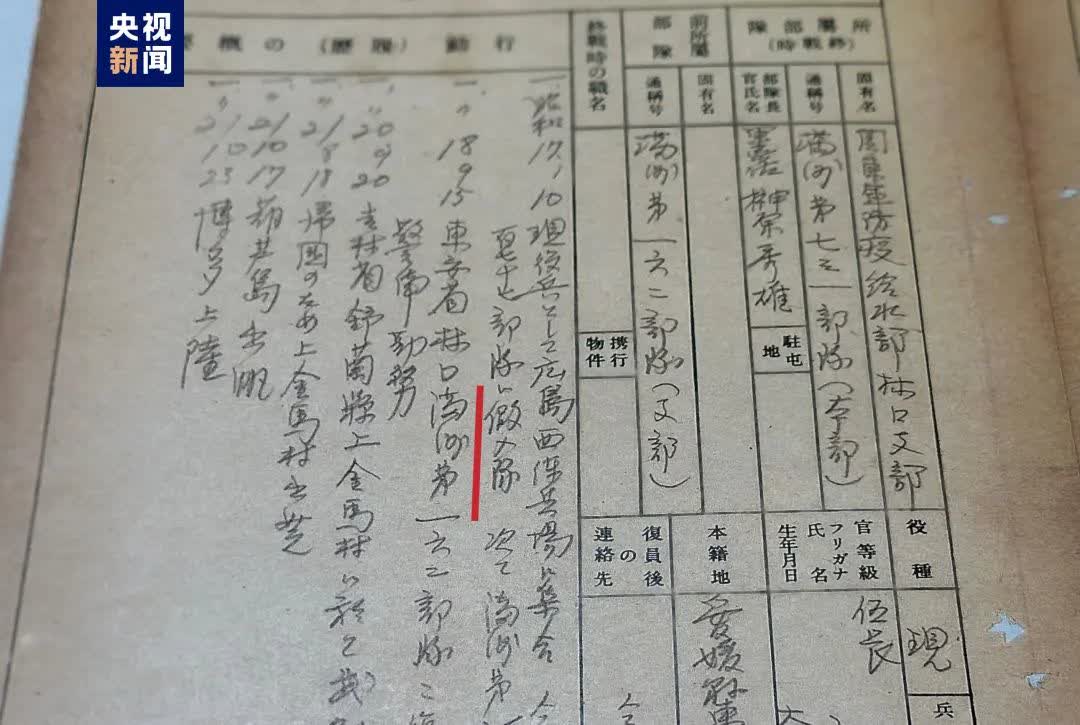 央视
新闻
所屬部隊
(終戰時)
固有名
関東軍防疫給水部林口支部
通稱号
満洲第七三一部隊(本部)
部隊長
官氏名
榊原秀雄
駐屯
地
前所屬
部隊
固有名
通稱号
満洲第一六二部隊(支部)
終戰時の職名
携行
物件
役種
現
兵
官等級
フリガナ
氏名
生年月日
伍長
本籍地
愛媛県
復員後
の
連絡先
行動(履歴)の概要
一、昭和17、10 現役兵として広島西練兵場に集合
部隊に仮入隊 次て満洲第
一、〃 18 9 15 東安省林口満洲第一六二部隊に
警備勤務
一、〃 20 9 20 吉林省舒蘭縣上金馬村に於て
一、〃 21 8 18 帰國のため上金馬村出発
一、〃 21 10 17 葫芦島出帆
一、〃 21 10 23 博多上陸